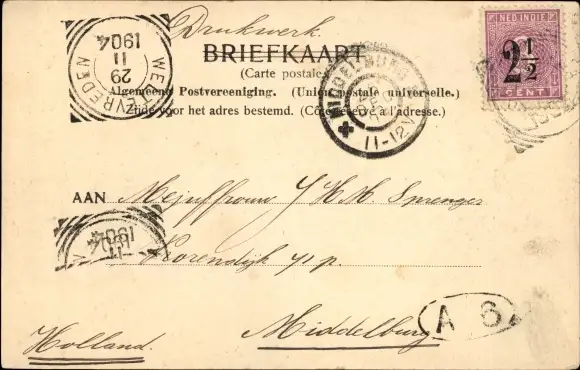 Drukwerk.
BRIEFKAART
(Carte postale)
Algemeene Postvereeniging. (Union postale universelle.)
Zijde voor het adres bestemd. (Côté réservé à l'adresse.)
NED. INDIE
2 1/2
CENT
WELTEVREDEN
29
11
1904
MIDDELBURG
11-12V
AAN Mejuffrouw J H M Sprenger
Korendijk
Middelburg
Holland.
11
1904
A 6